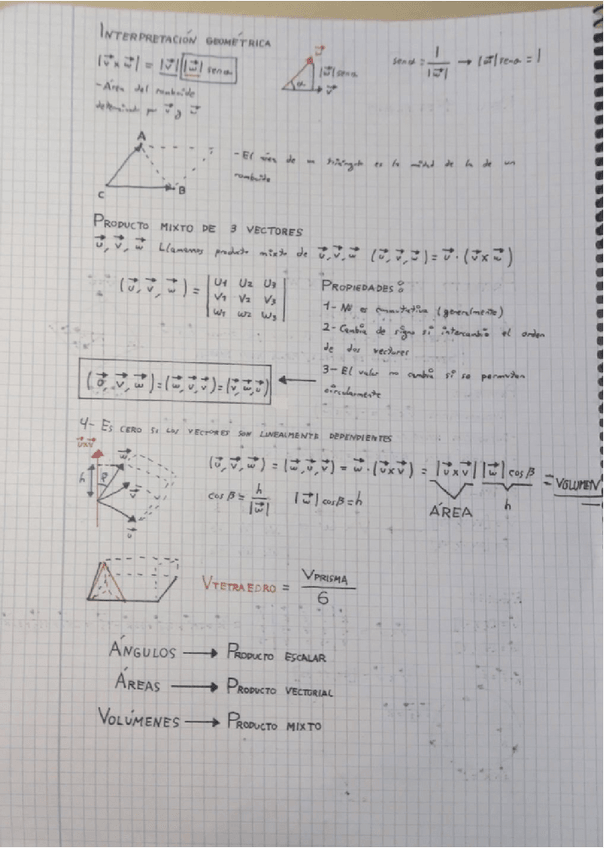 INTERPRETACIÓN GEOMÉTRICA
|v⃗ x w⃗| = |v⃗| |w⃗| senα
|w⃗| senα
α
v⃗
senα = 1/|w⃗| → |w⃗| senα = 1
- Área del romboide
determinado por v⃗ y w⃗
A
B
C
- El área de un triángulo es la mitad de la de un
romboide
PRODUCTO MIXTO DE 3 VECTORES
u⃗, v⃗, w⃗ Llamamos producto mixto de u⃗, v⃗, w⃗ (u⃗, v⃗, w⃗) = u⃗ · (v⃗ x w⃗)
(u⃗, v⃗, w⃗) = | U1 U2 U3 |
| V1 V2 V3 |
| W1 W2 W3 |
PROPIEDADES:
1- No es conmutativa (generalmente)
2- Cambia de signo si intercambio el orden
de dos vectores
3- El valor no cambia si se permutan
circularmente
(u⃗, v⃗, w⃗) = (w⃗, u⃗, v⃗) = (v⃗, w⃗, u⃗)
4- ES CERO SI LOS VECTORES SON LINEALMENTE DEPENDIENTES
u⃗xv⃗
w⃗
h
β
v⃗
u⃗
(u⃗, v⃗, w⃗) = (w⃗, u⃗, v⃗) = w⃗ · (u⃗ x v⃗) = |u⃗ x v⃗| |w⃗| cosβ = VOLUMEN
ÁREA
h
cosβ = h/|w⃗| |w⃗| cosβ = h
VTETRAEDRO = VPRISMA/6
ÁNGULOS → PRODUCTO ESCALAR
ÁREAS → PRODUCTO VECTORIAL
VOLÚMENES → PRODUCTO MIXTO